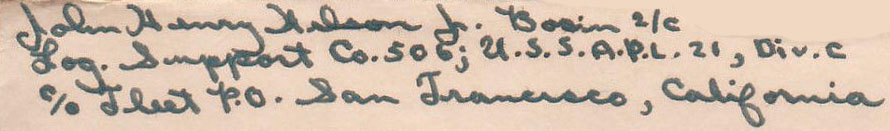 John Henry Nelson Jr. Bosin 2/c
Log. Support Co. 506; U.S.S.A.P.L. 21, Div. C
c/o Fleet P.O. San Francisco, California